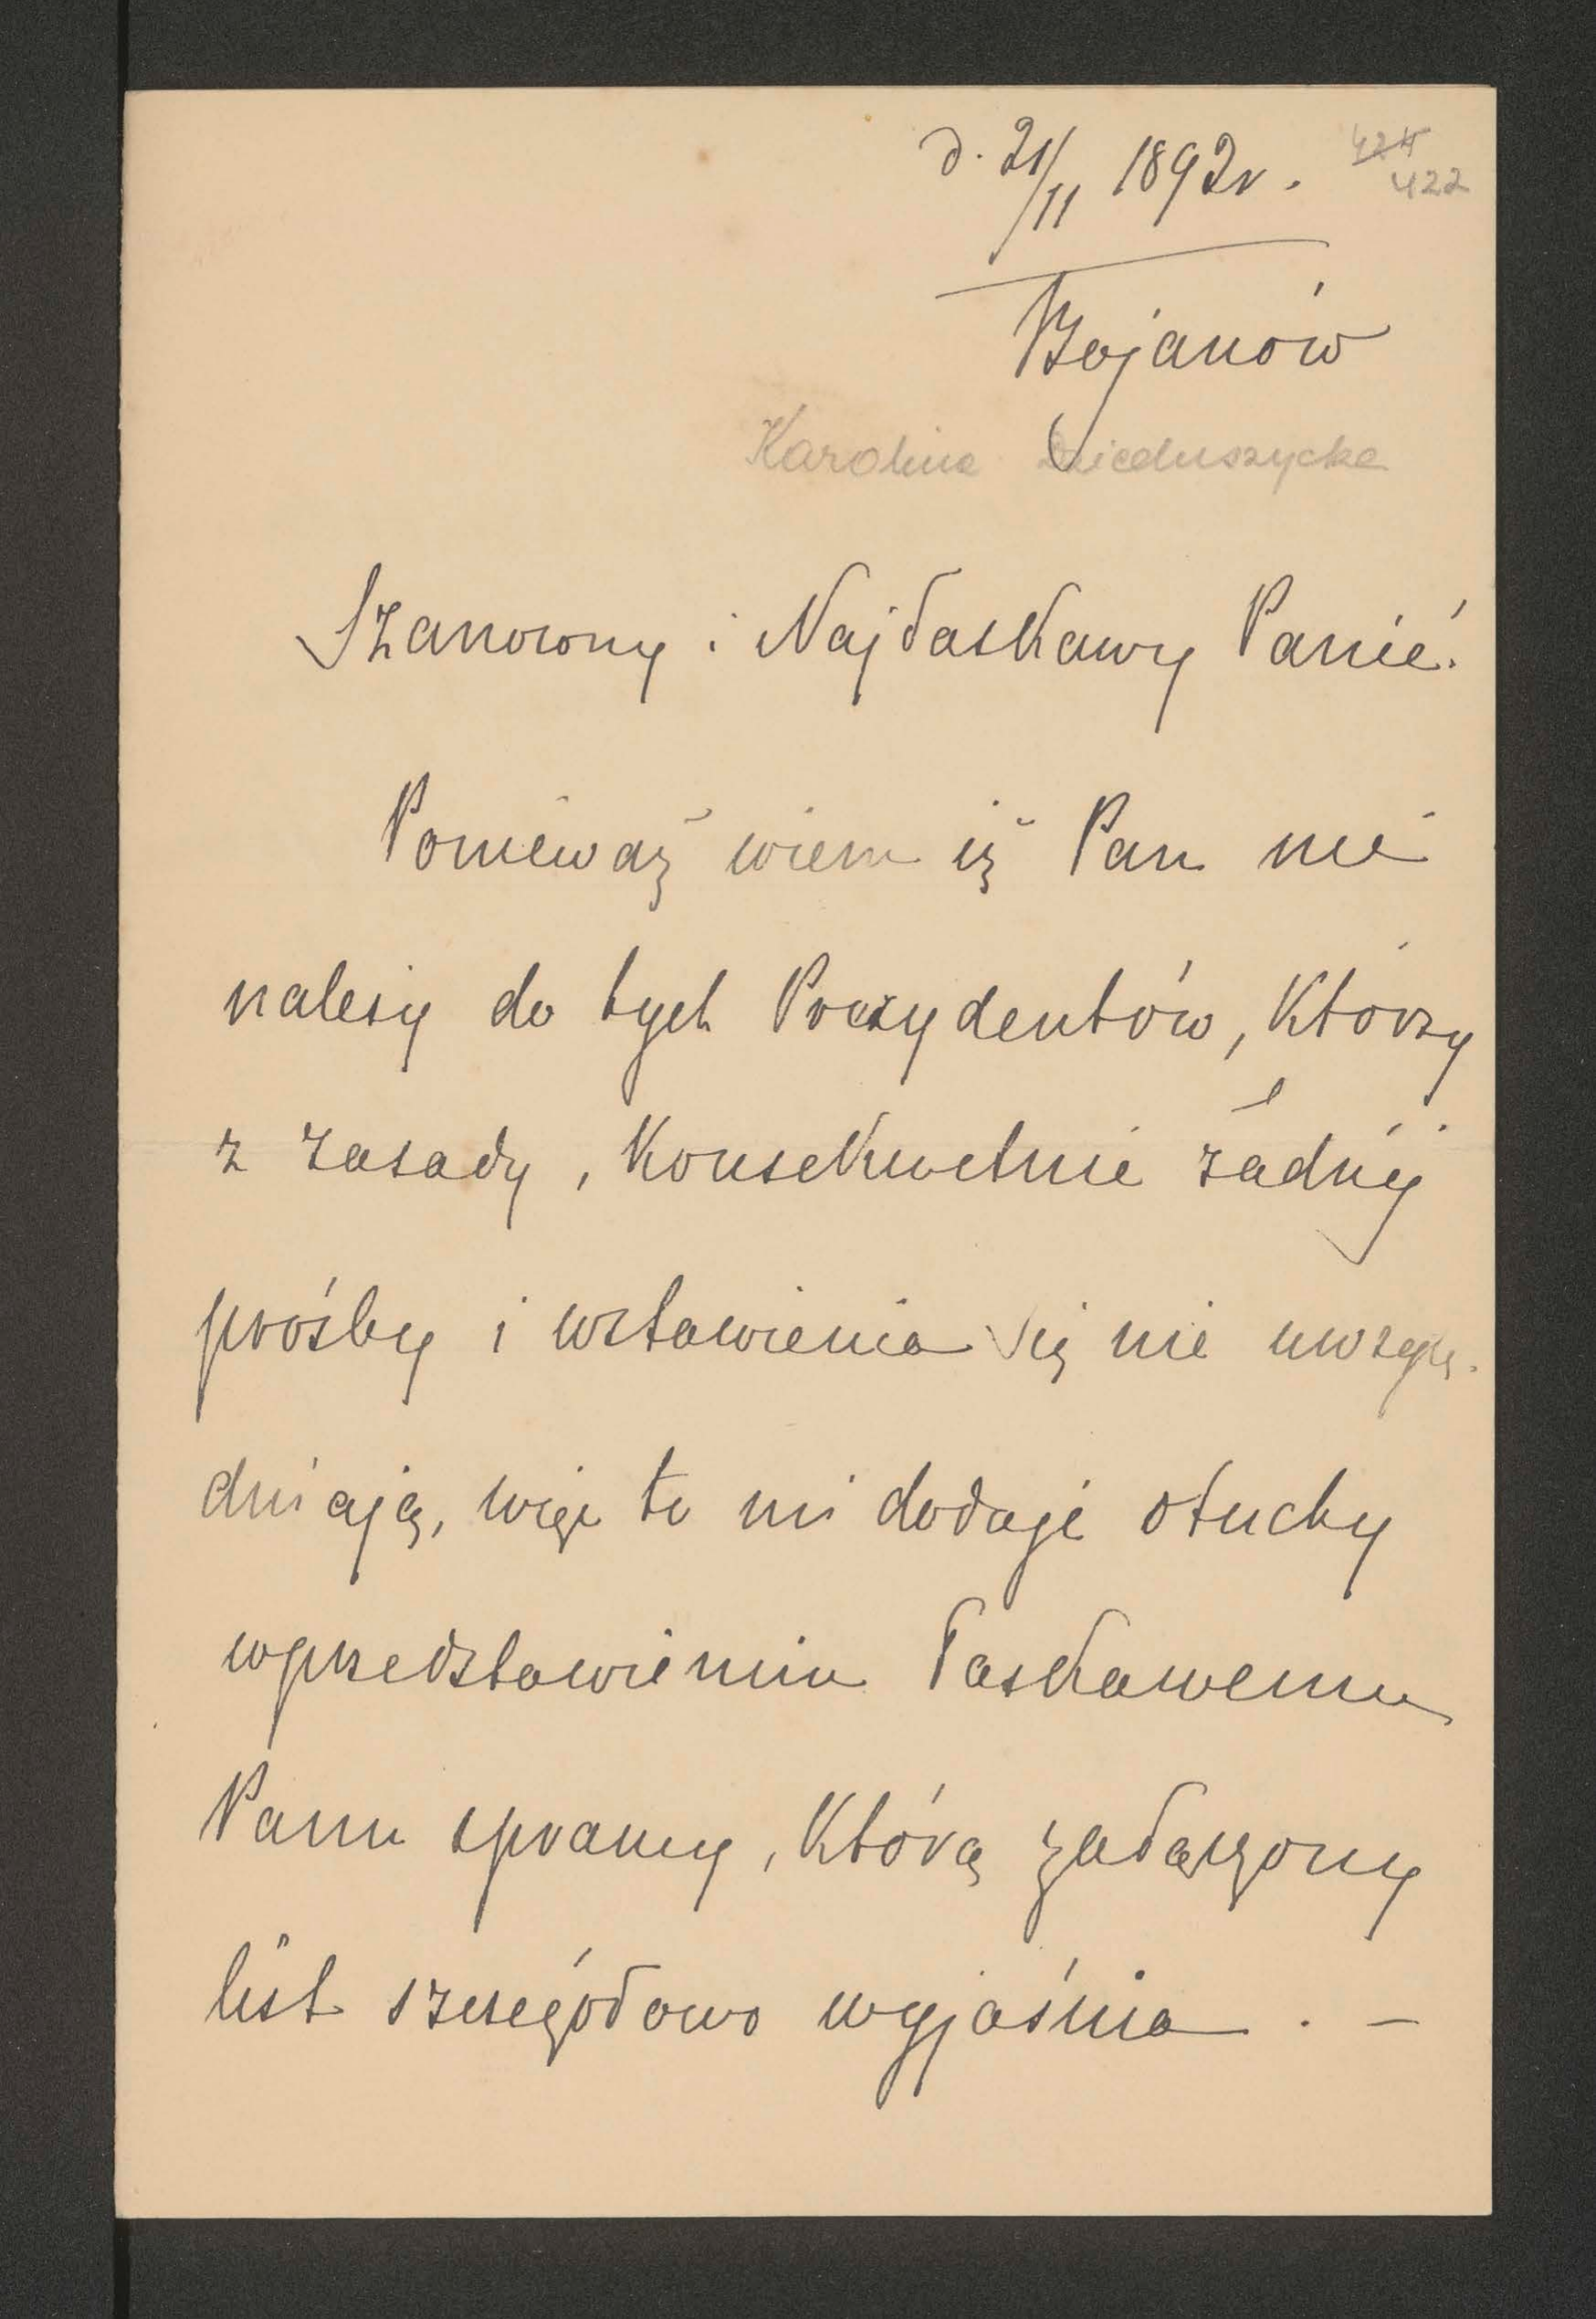 d. 21/11 1892r.
424
422
Bojanów
Karolina Dzieduszycka
Szanowny i Najłaskawy Panie.
Ponieważ wiem iż Pan nie
należy do tych Prezydentów, Którzy
z zasady, Konsekwetnie żadnéj
prośby i wstawienia się nie uwzglę-
dniają, więc to mi dodaje otuchy
w przedstawieniu Łaskawemu
Panu sprawy, Którą załączony
list szczegółowo wyjaśnia. -